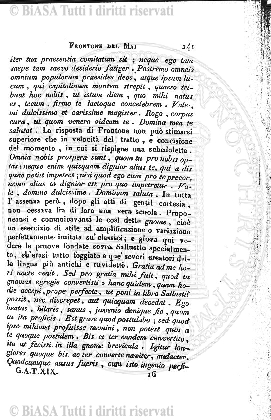 © BIASA Tutti i diritti riservati
FRONTONE DEL MAI 241
iter tua praesentia comitatum sit; neque ego tam
saepe tam saevo desiderio fatiger. Postremo omneis
omnium popolorum praesides deos, atque ipsum Iu-
vem, qui capitolinum montem strepit, quaeso tri-
buat hoc nobis, ut istum diem, quo mihi natus
es, tecum, firmo te laetoque concelebrem. Vale,
mi dulcissime et carissime magister. Rogo, corpus
cura, ut quom venero videam te. Domina mea te
salutat. La risposta di Frontone non può stimarsi
superiore che in velocità del tratto, e concisione
del momento, in cui si ripigne una scheda:
Omnia nobis prospera sunt, quom tu pro nobis op-
tas: neque enim quisquam dignior alius te, qui a dis
quae petit impetret; nisi quod ego cum pro te precor,
nemo alius te dignior est pro quo impetretur. Va-
le, domine dulcissime. Dominam saluta. In tutta
l'assenza però, dopo gli atti di gentil cortesia,
non cessava fra di loro una vera scuola. Propo-
nevansi e comunicavansi le così dette gnome, cioè
un esercizio di stile ad amplificazione o variazione
perfettamente imitata su' classici; e giova qui ve-
dere le prove fondate sovra Sallustio specialmen-
te,
la lingua più antichi e ruvidetti. Gratia ad me ho-
ri nocte venit. Sed pro gratia mihi fuit, quod tu
gnomen egregie convertisti: hanc quidem, quam ho-
die accepi, prope perfecte, ut poni in libro Sallustii
possit, nec discrepet, aut quicquam decedat. Ego
beatus, hilaris, sanus, juvenis denique fio, quom
tu ita proficis. Est grave quod postulabo; sed quod
ipse mihimet profuisse memini, non potest quin a
te quoque postulem. Bis et ter eandem convertito,
ita ut fecisti in illa gnome brevicula. Igitur lon-
giores quoque bis ac ter converte naviter, audacter.
Quodcumque ausus fueris, cum isto ingenio perfi-
G.A.T.XIX. 16
© BIASA Tutti i diritti riservati